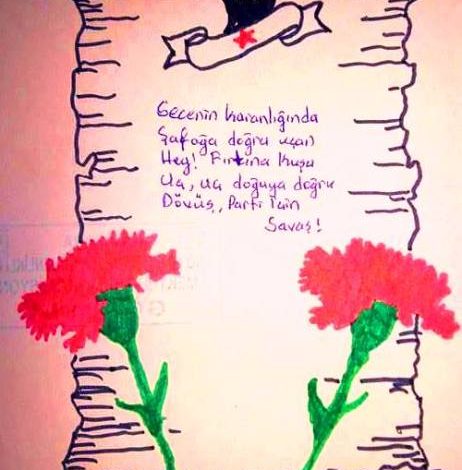 Gecenin karanlığında
Şafağa doğru uçan
Hey! Fırtına kuşu
Uç, uç doğuya doğru
Dövüş, Parti için
Savaş!